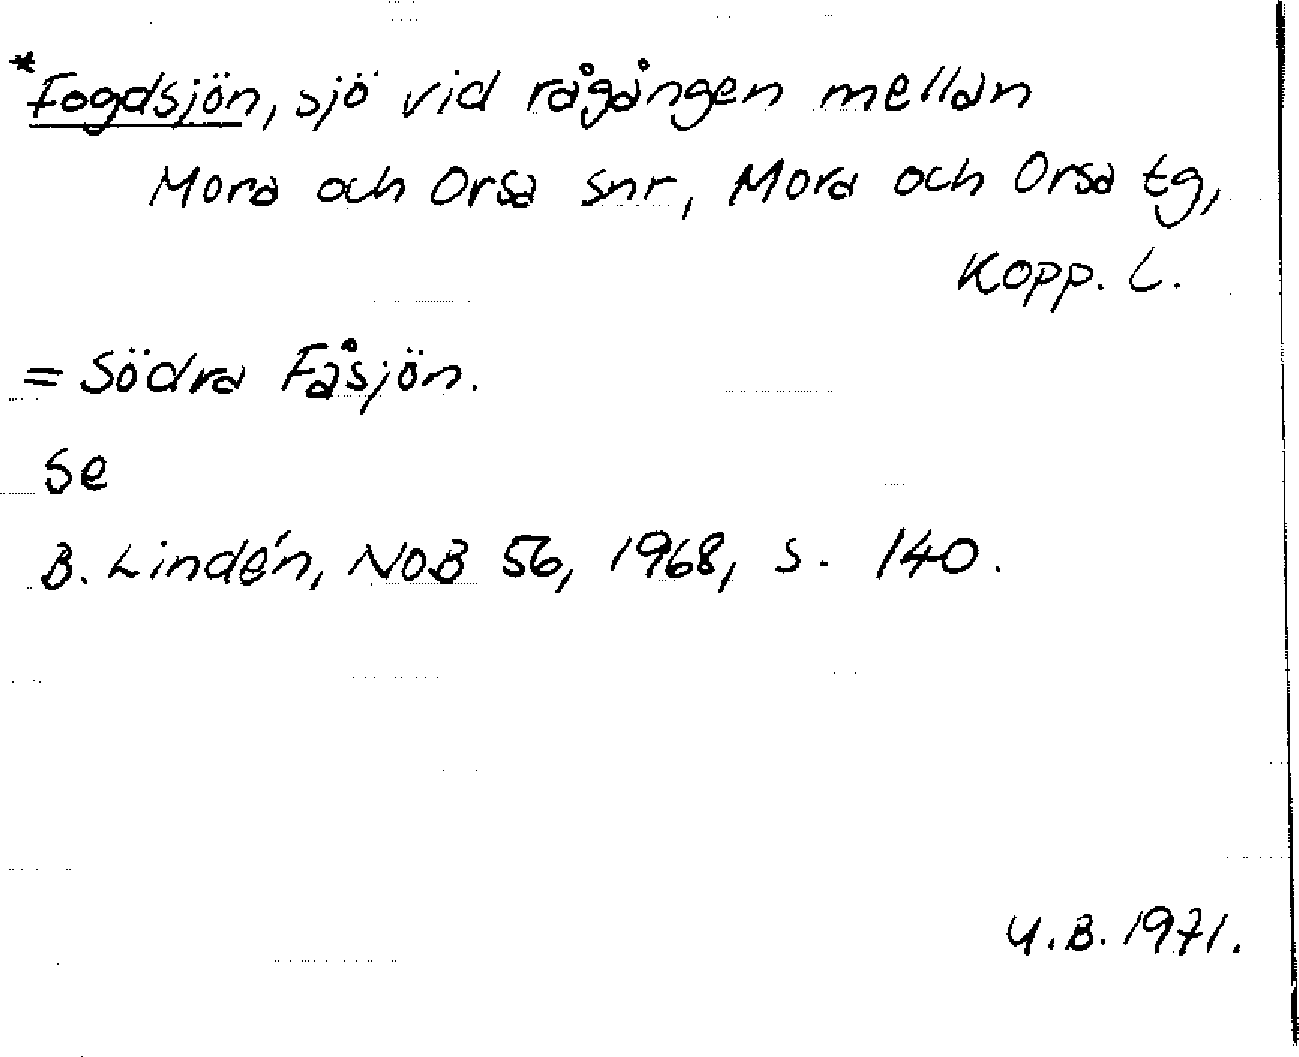 *Fogdsjön, sjö vid rågången mellan
Mora och Orsa snr, Mora och Orsa tg,
Kopp. L.
= Södra Fåsjön.
Se
B. Lindén, NOB 56, 1968, s. 140.
U.B. 1971.